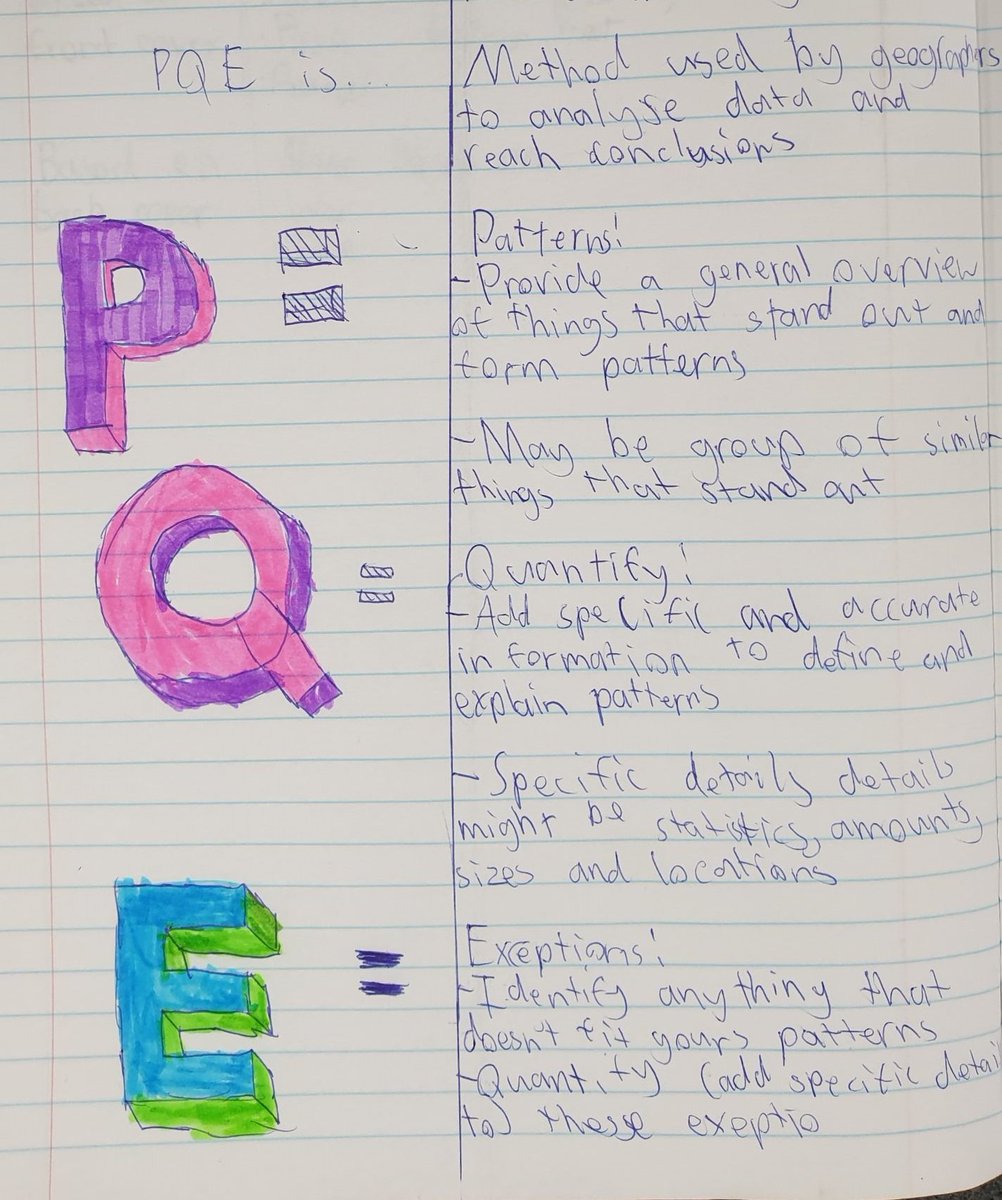 PQE is...
Method used by geographers
to analyse data and
reach conclusions
P =
Patterns:
-Provide a general overview
of things that stand out and
form patterns
-May be group of similar
things that stand out
Q =
Quantify:
-Add specific and accurate
information to define and
explain patterns
-Specific details details
might be statistics, amounts,
sizes and locations
E =
Exceptions:
-Identify anything that
doesn't fit yours patterns
-Quantify (add specific detail
to) thesse exeptio